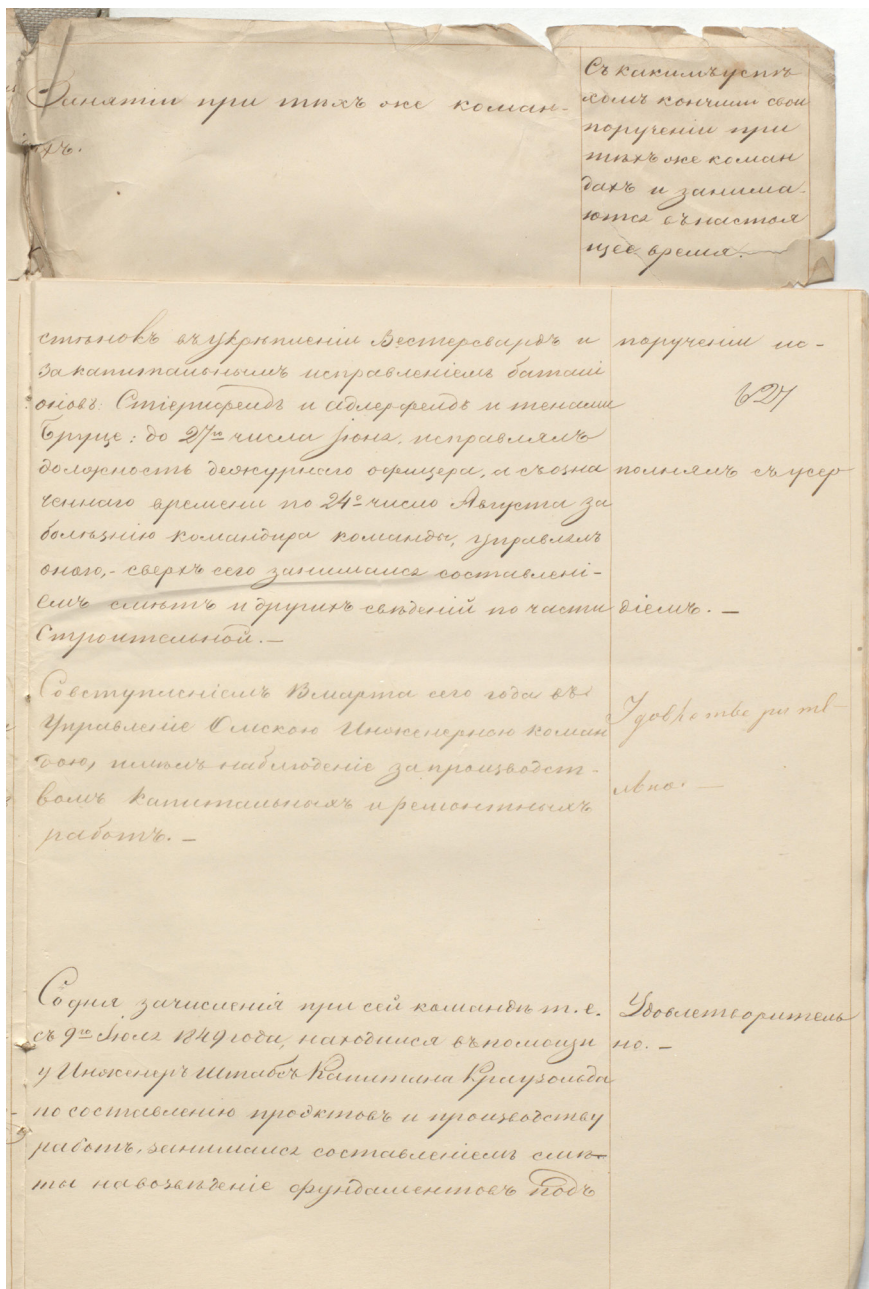 Занятіи при тѣхъ же коман-
хъ.
Съ какимъ успѣ
хомъ кончили свои
порученіи при
тѣхъ же коман
дахъ и занима-
ются въ настоя
щее время.
стѣнокъ въ укрѣпленіи Вестерсвардъ и
за капитальнымъ исправленіемъ батали
оновъ: Стіернфельдъ и Адлерфельдъ и тенами
Бруце: до 27го числа Іюня, исправлялъ
должность дежурнаго офицера, а съ озна
ченнаго времени по 24е число Августа за
болѣзнію командира команды, управлялъ
оною,- сверхъ сего занимался составлені-
емъ смѣтъ и другихъ свѣденій по части
Строительной. —
порученіи ис-
627
полнялъ съ усер
діемъ. —
Со вступленіемъ 13 марта сего года въ
Управленіе Омскою Инженерною коман
дою, имѣлъ наблюденіе за производст-
вомъ капитальныхъ и ремонтныхъ
работъ. —
Удовлетворите
льно. —
Со дня зачисленія при сей командѣ т. е.
съ 9го Іюля 1849 года, находился въ помощи
у Инженеръ Штабсъ Капитана Краузольда
по составленію проэктовъ и производству
работъ, занимался составленіемъ смѣ-
ты на возведеніе фундаментовъ подъ
Удовлетворитель
но. —